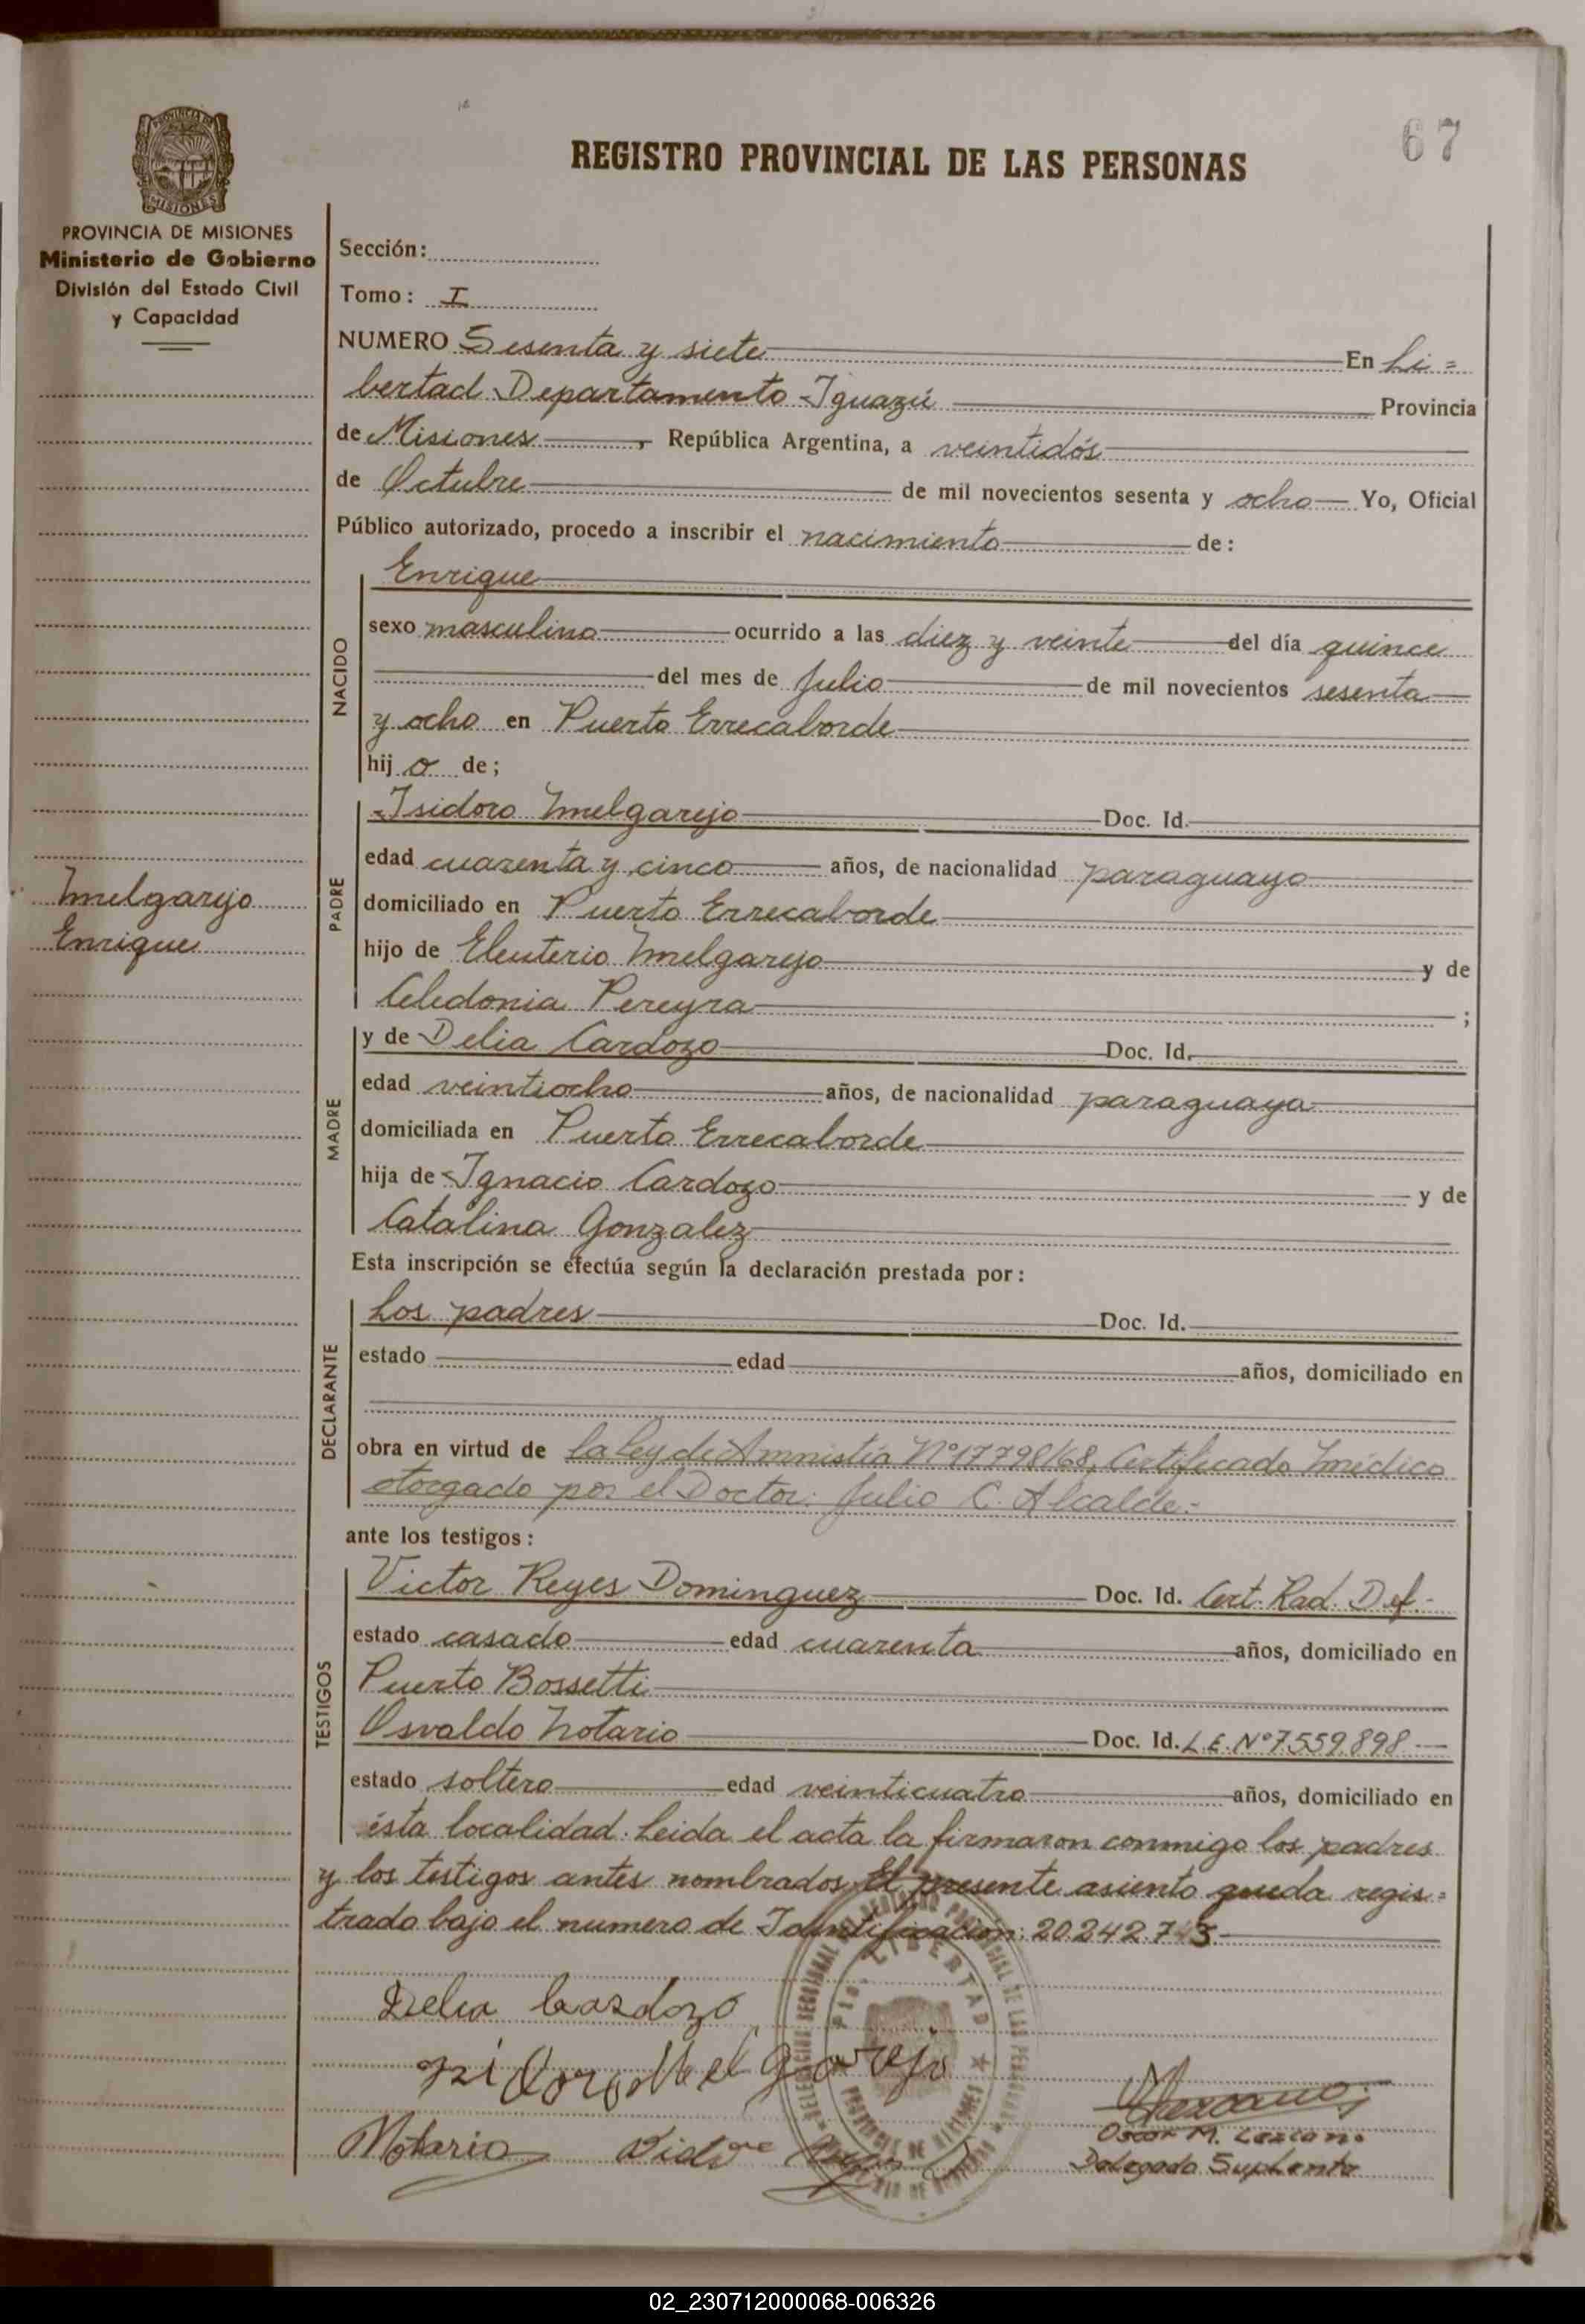 67
REGISTRO PROVINCIAL DE LAS PERSONAS
PROVINCIA DE MISIONES
Ministerio de Gobierno
División del Estado Civil
y Capacidad
Sección:
Tomo: I
NUMERO Sesenta y siete En Li=
bertad Departamento Iguazú Provincia
de Misiones, República Argentina, a veintidós
de Octubre de mil novecientos sesenta y ocho Yo, Oficial
Público autorizado, procedo a inscribir el nacimiento de:
NACIDO
Enrique
sexo masculino ocurrido a las diez y veinte del día quince
del mes de Julio de mil novecientos sesenta
y ocho en Puerto Errecaborde
hijo de;
PADRE
Isidoro Melgarejo Doc. Id.
edad cuarenta y cinco años, de nacionalidad paraguayo
domiciliado en Puerto Errecaborde
hijo de Eleuterio Melgarejo y de
Celedonia Pereyra ;
Melgarejo
Enrique
MADRE
y de Delia Cardozo Doc. Id.
edad veintiocho años, de nacionalidad paraguaya
domiciliada en Puerto Errecaborde
hija de Ignacio Cardozo y de
Catalina Gonzalez
Esta inscripción se efectúa según la declaración prestada por:
DECLARANTE
Los padres Doc. Id.
estado edad años, domiciliado en
obra en virtud de la Ley de Amnistía Nº17798/68, Certificado Médico
otorgado por el Doctor: Julio C. Alcalde.-
ante los testigos:
TESTIGOS
Victor Reyes Dominguez Doc. Id. Cert. Rad. Def.-
estado casado edad cuarenta años, domiciliado en
Puerto Bossetti
Osvaldo Notario Doc. Id. L.E. Nº7.559.898
estado soltero edad veinticuatro años, domiciliado en
ésta localidad. Leida el acta la firmaron conmigo los padres
y los testigos antes nombrados. El presente asiento queda regis=
trado bajo el numero de Identificacion: 20.242.743
Delia Cardozo
Melgarejo
Notario
Oscar M. Lezcano
Delegado Suplente
LIBERTAD
PROVINCIA DE MISIONES
02_230712000068-006326